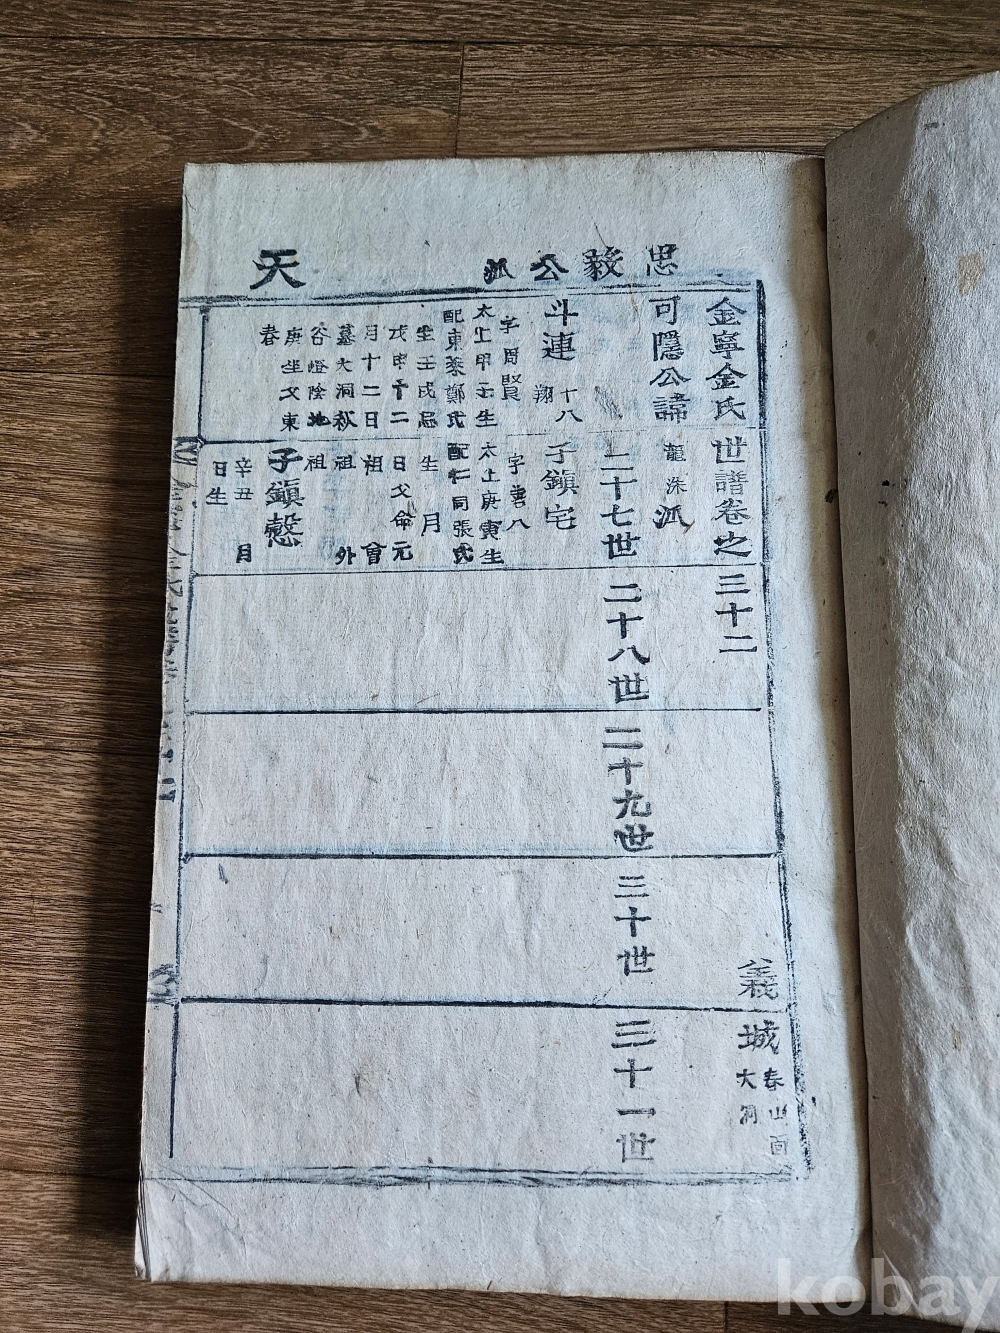 忠毅公派
天
金寧金氏世譜卷之三十二
義城
春山面
大洞
可隱公諱
龍洙派
二十七世
二十八世
二十九世
三十世
三十一世
斗連
十八
翔
字周賢
太上甲子生
配東萊鄭氏
生壬戌忌
戊申十二
月十二日
墓大洞秋
谷嶝陰地
庚坐父東
春
子鎭宅
字善八
太上庚寅生
配仁同張氏
生 月
日父命元
祖 會
祖 外
祖
子鎭慤
辛丑 月
日生
kobay